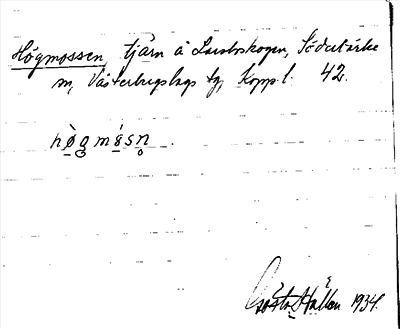 Högmossen, tjärn å Laroboskogen, Söderbärke
sn, Västerbergslags tg, Kopp.l. 42.
hø̀gmåsn̥.
Gösta Hallén 1934.